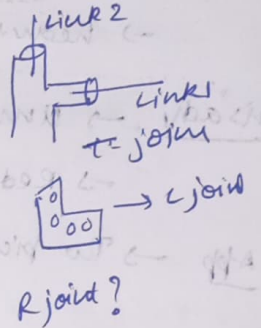 Link 2
Link1
t- joint
→ L joint
R joint?